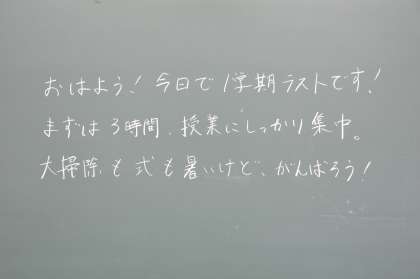 おはよう!今日で1学期ラストです!
まずは3時間、授業にしっかり集中。
大掃除も式も暑いけど、がんばろう!